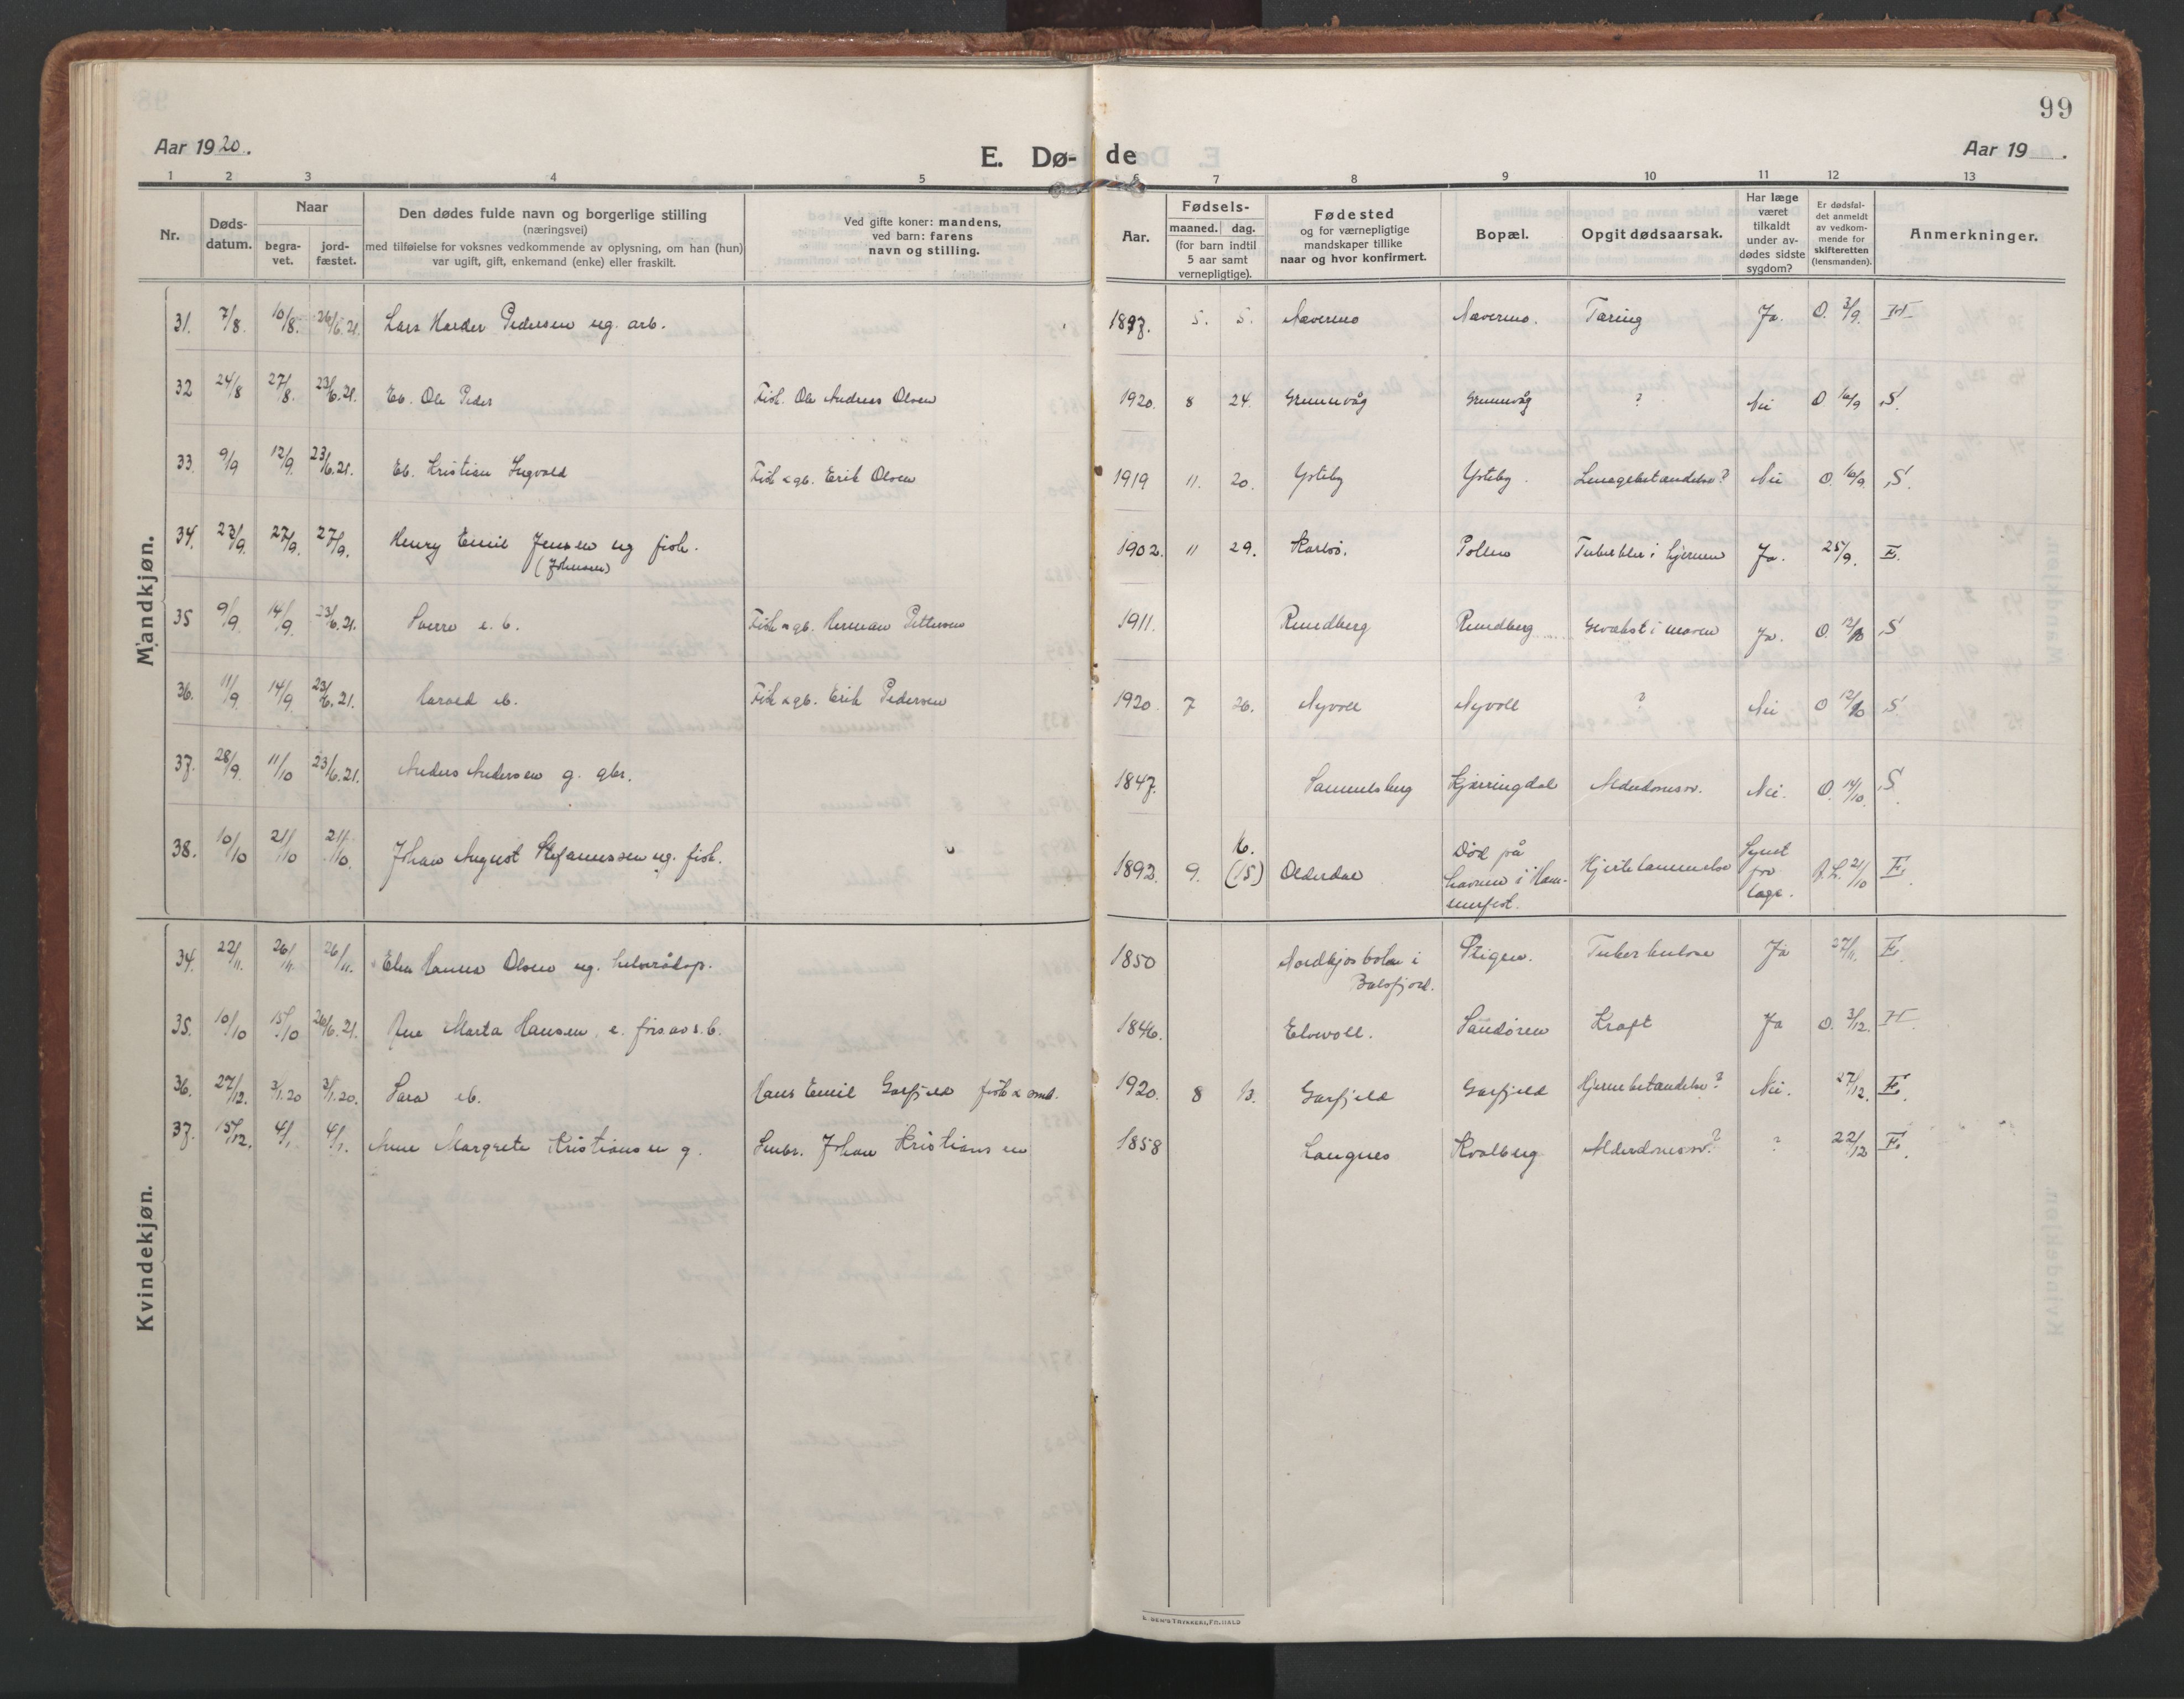 99
Aar 1920.
E. Dø-de
Aar 19 .
1 2 3 4 5 6 7 8 9 10 11 12 13
Nr.
Døds-
datum.
Naar
begra-
vet.
jord-
fæstet.
Den dødes fulde navn og borgerlige stilling
(næringsvei)
med tilføielse for voksnes vedkommende av oplysning, om han (hun)
var ugift, gift, enkemand (enke) eller fraskilt.
Ved gifte koner: mandens,
ved barn: farens
navn og stilling.
Aar.
Fødsels-
maaned. dag.
(for barn indtil
5 aar samt
vernepligtige).
Fødested
og for værnepligtige
mandskaper tillike
naar og hvor konfirmert.
Bopæl.
Opgit dødsaarsak.
Har læge
været
tilkaldt
under av-
dødes sidste
sygdom?
Er dødsfal-
det anmeldt
av vedkom-
mende for
skifteretten
(lensmanden).
Anmerkninger.
Mandkjøn.
31. 7/8. 10/8. 26/6.21. Lars Harder Pedersen ug. arb. 1897. 5. 5. Navermo Navermo. Tæring Ja. O. 3/9. H
32 24/8 27/8. 23/6.21. Eb. Ole Peder Fisk. Ole Andreas Olsen 1920. 8 24. Grunnvåg Grunnvåg ? Nei O 16/9 S.
33. 9/9 12/9. 23/6.21. Eb. Kristian Ingvald Fisk & gb. Erik Olsen 1919 11. 20. Ysteby Ysteby. Lungebetændelse? Nei O. 16/9. S.
34. 23/9. 27/9. 27/9. Henry Emil Jensen ug fisk. 1902. 11 29. Karlsö. Pollen Tuberkler i hjernen Ja. 25/9. E.
(Johnsen)
35 9/9. 14/9. 23/6.21. Sverre e. b. Fisk & gb. Herman Pettersen 1911. Rundberg Rundberg Gevækst i maven Ja. O. 12/10 S
36. 11/9 14/9. 23/6.21. Harald eb. Fisk & gb. Erik Pedersen 1920. 7 26. Nyvoll Nyvoll ? Nei O 12/10 S.
37. 28/9. 11/10 23/6.21. Anders Andersen g. gbr. 1847. Samuelsberg Kjærringdal Alderdomssv. Nei. O. 14/10. S.
38. 10/10 21/10 21/10. Johan August Stefanussen ug. fisk. 1892. 9. 16. (15) Olderdal Død på
havnen i Ham-
merfest. Hjertelammelse Synet
fra
læge. 21/10 E.
Kvindekjøn.
34. 22/11. 26/11. 26/11. Elen Hanna Olsen ug. 1850 Nordkjosbotn i
Balsfjord. Stigen. Tuberkulose Ja 27/11. E.
35. 10/10 15/10 26/6.21. Ane Marta Hansen, e. fors. av s. b. 1846. Elvevoll. Sandören Kræft Ja O. 3/12. H
36. 27/12. 3/1.20 3/1.20. Sara eb. Hans Emil Garfjeld fisk & smb. 1920. 8 13. Garfjeld Garfjeld Hjernebetændelse? Nei. 27/12. E.
37. 15/12. 4/1. 4/1. Anne Margrete Kristiansen g. Smbr. Johan Kristiansen 1858 Langnes Kvalberg Alderdomssv.? ? 22/12 E.